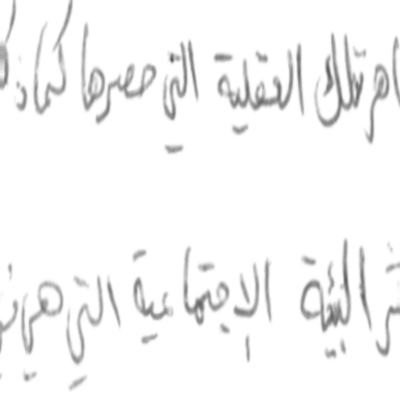 تلك العقلية التي حصرها كما
البيئة الإجتماعية التي هي